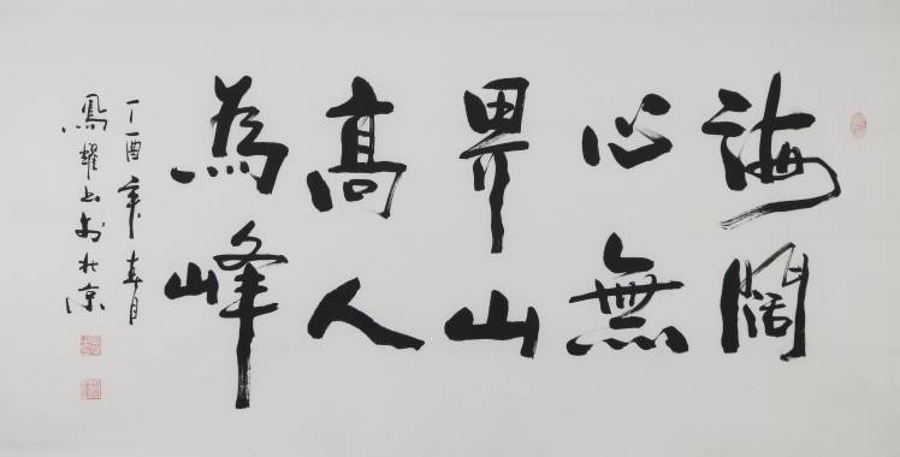 海闊
心無
界山
高人
為峰
丁酉年春月
鳳耀書於北京